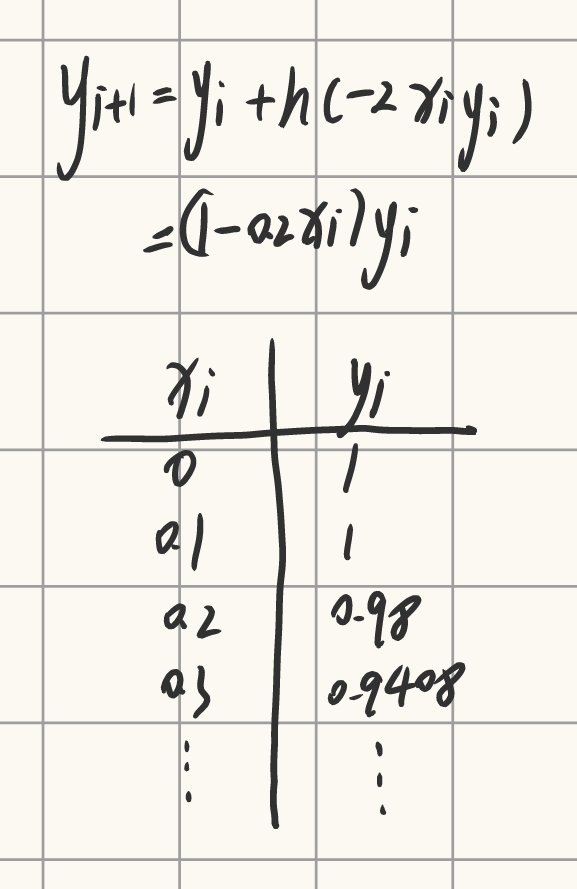 y_{i+1} = y_i + h(-2x_i y_i)
= (1 - 0.2x_i) y_i
x_i | y_i
0 | 1
0.1 | 1
0.2 | 0.98
0.3 | 0.9408
⋮ | ⋮